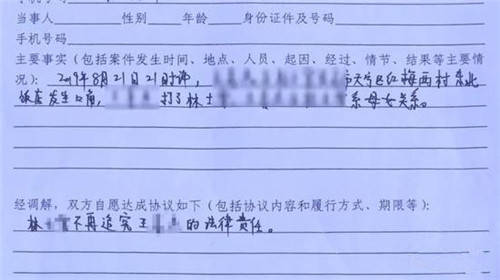 手机号码
当事人 性别 年龄 身份证件及号码
手机号码
主要事实（包括案件发生时间、地点、人员、起因、经过、情节、结果等主要情
况）：2019年8月21日21时许， 市天宁区红梅西村东北
饭店发生口角， 打了林士 系母女关系。
经调解，双方自愿达成协议如下（包括协议内容和履行方式、期限等）：
林 不再追究王 的法律责任。